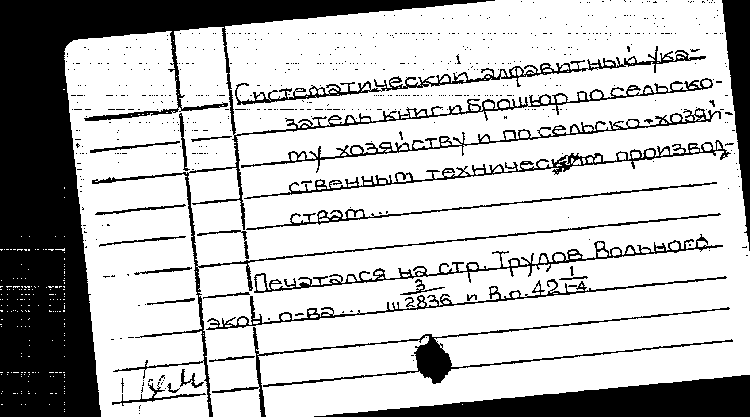 Систематический алфавитный ука-
затель книг и брошюр по сельско-
му хозяйству и по сельско-хозяй-
ственным техническим производ-
ствам...
Печатался на стр. Трудов Вольного
экон. о-ва... Ш 3/2836 и В.п. 42 1/1-4.